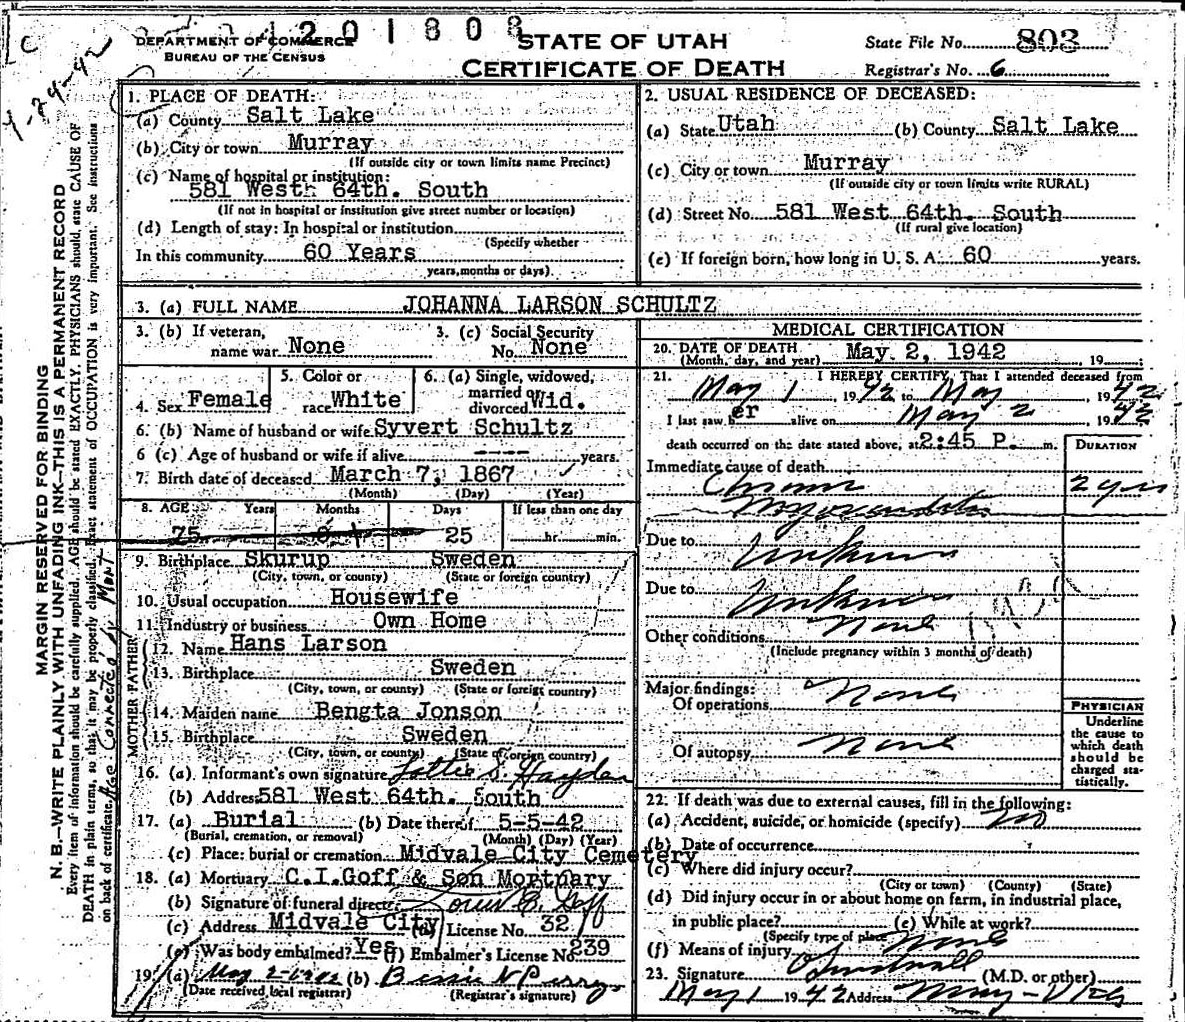 1201808
DEPARTMENT OF COMMERCE
BUREAU OF THE CENSUS
STATE OF UTAH
CERTIFICATE OF DEATH
State File No. 803
Registrar's No. 6
4-29-42
MARGIN RESERVED FOR BINDING
N. B.—WRITE PLAINLY WITH UNFADING INK—THIS IS A PERMANENT RECORD
Every item of information should be carefully supplied. AGE should be stated EXACTLY. PHYSICIANS should state CAUSE OF
DEATH in plain terms, so that it may be properly classified. Exact statement of OCCUPATION is very important. See instructions
on back of certificate.
Age Connected by Mort
1. PLACE OF DEATH:
(a) County Salt Lake
(b) City or town Murray
(If outside city or town limits name Precinct)
(c) Name of hospital or institution:
581 West 64th. South
(If not in hospital or institution give street number or location)
(d) Length of stay: In hospital or institution
(Specify whether
In this community 60 Years
years, months or days)
2. USUAL RESIDENCE OF DECEASED:
(a) State Utah (b) County Salt Lake
(c) City or town Murray
(If outside city or town limits write RURAL)
(d) Street No. 581 West 64th. South
(If rural give location)
(e) If foreign born, how long in U. S. A. 60 years.
3. (a) FULL NAME JOHANNA LARSON SCHULTZ
3. (b) If veteran, name war None
3. (c) Social Security No. None
4. Sex Female
5. Color or race White
6. (a) Single, widowed, married or divorced Wid.
6. (b) Name of husband or wife Syvert Schultz
6 (c) Age of husband or wife if alive ---- years.
7. Birth date of deceased March 7, 1867
(Month) (Day) (Year)
8. AGE Years Months Days If less than one day
75 25 hr. min.
9. Birthplace Skurup Sweden
(City, town, or county) (State or foreign country)
10. Usual occupation Housewife
11. Industry or business Own Home
FATHER
12. Name Hans Larson
13. Birthplace Sweden
(City, town, or county) (State or foreign country)
MOTHER
14. Maiden name Bengta Jonson
15. Birthplace Sweden
(City, town, or county) (State or foreign country)
16. (a) Informant's own signature Lottie S. Hayden
(b) Address 581 West 64th. South
17. (a) Burial (b) Date thereof 5-5-42
(Burial, cremation, or removal) (Month) (Day) (Year)
(c) Place: burial or cremation Midvale City Cemetery
18. (a) Mortuary C.I.Goff & Son Mortuary
(b) Signature of funeral director Louis E. Goff
(c) Address Midvale City (d) License No. 32
(e) Was body embalmed? Yes (f) Embalmer's License No. 239
19. (a) May 2-1942 (b) Bessie N Perry
(Date received local registrar) (Registrar's signature)
MEDICAL CERTIFICATION
20. DATE OF DEATH
(Month, day, and year) May 2, 1942, 19
21. I HEREBY CERTIFY, That I attended deceased from
May 1, 1942 to May, 1942
I last saw her alive on May 2, 1942
death occurred on the date stated above, at 2:45 P. m.
DURATION
Immediate cause of death
Chronic 2 yrs
Myocarditis
Due to Unknown
Due to Unknown
Other conditions None
(Include pregnancy within 3 months of death)
Major findings:
Of operations None
Of autopsy None
PHYSICIAN
Underline
the cause to
which death
should be
charged sta-
tistically.
22. If death was due to external causes, fill in the following:
(a) Accident, suicide, or homicide (specify) No
(b) Date of occurrence
(c) Where did injury occur?
(City or town) (County) (State)
(d) Did injury occur in or about home on farm, in industrial place,
in public place? (e) While at work?
(Specify type of place)
(f) Means of injury None
23. Signature (M.D. or other)
May 1 1942 Address Murray-Utah